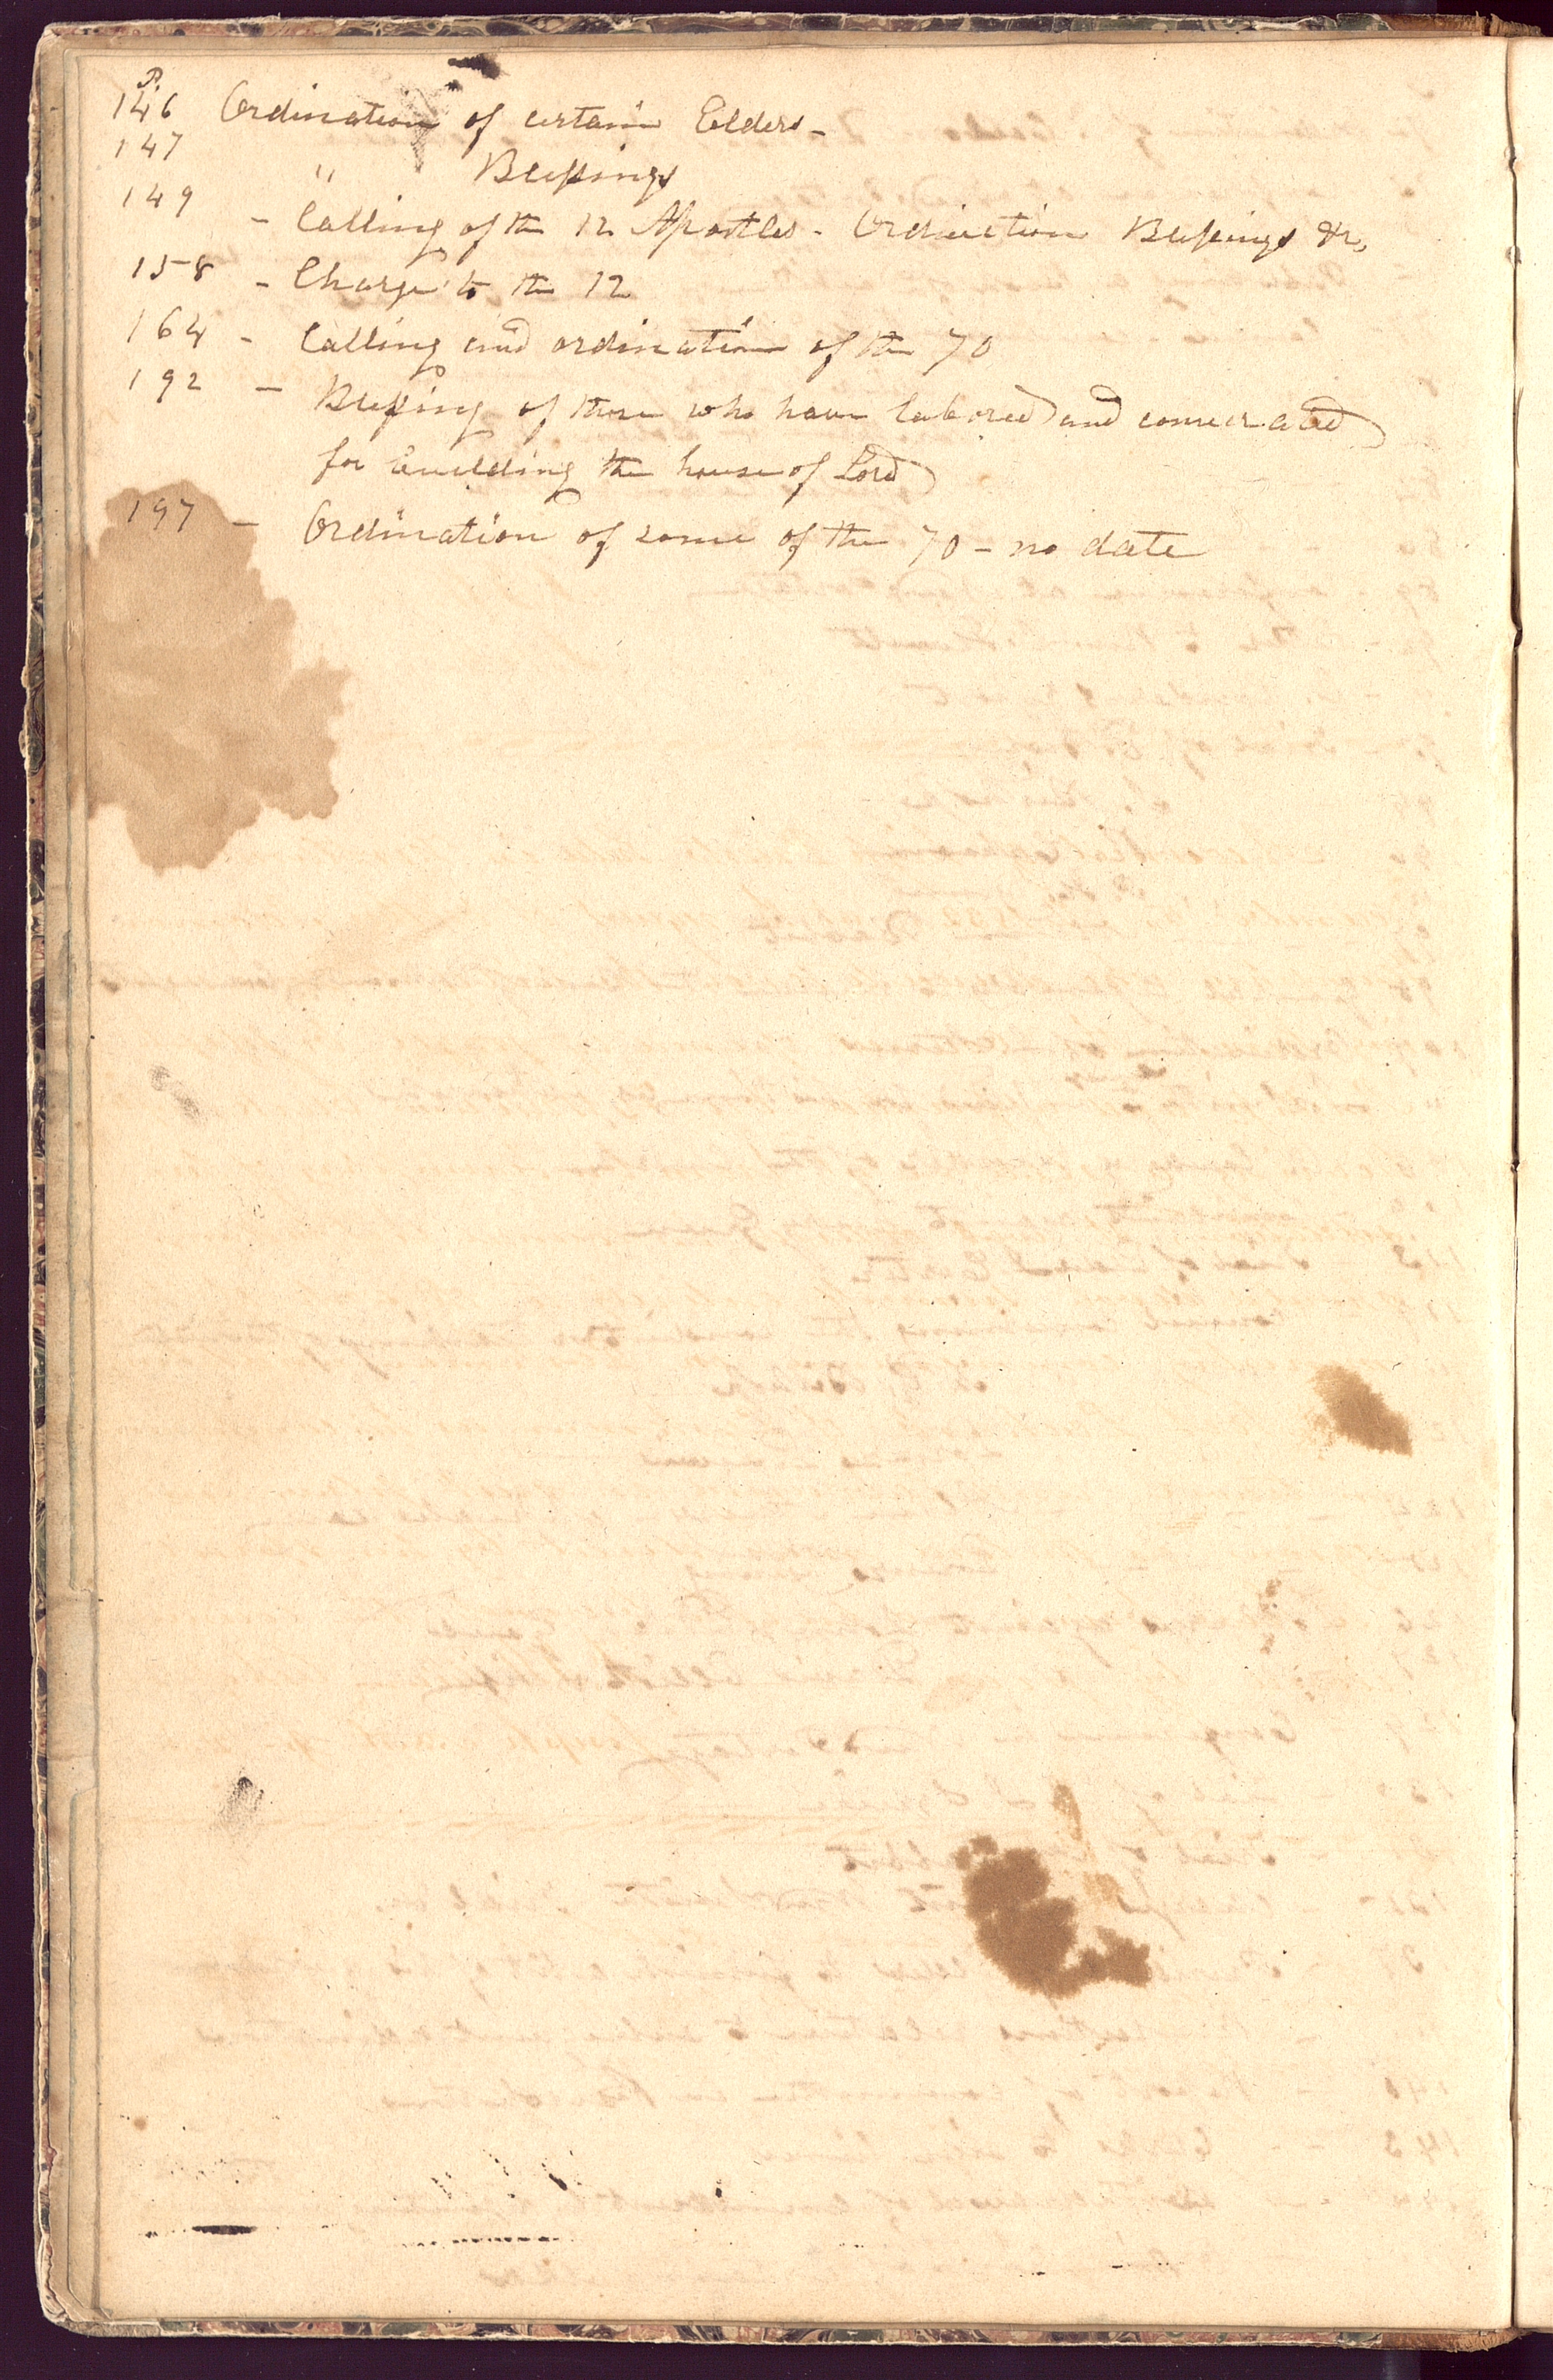 P.
146 Ordination of certain Elders -
147 " Blessings
149 - Calling of the 12 Apostles - Ordination Blessings &c,
158 - Charge to the 12
164 - Calling and ordination of the 70
192 - Blessing of those who have labored and consecrated
for building the house of Lord
197 - Ordination of some of the 70 - no date